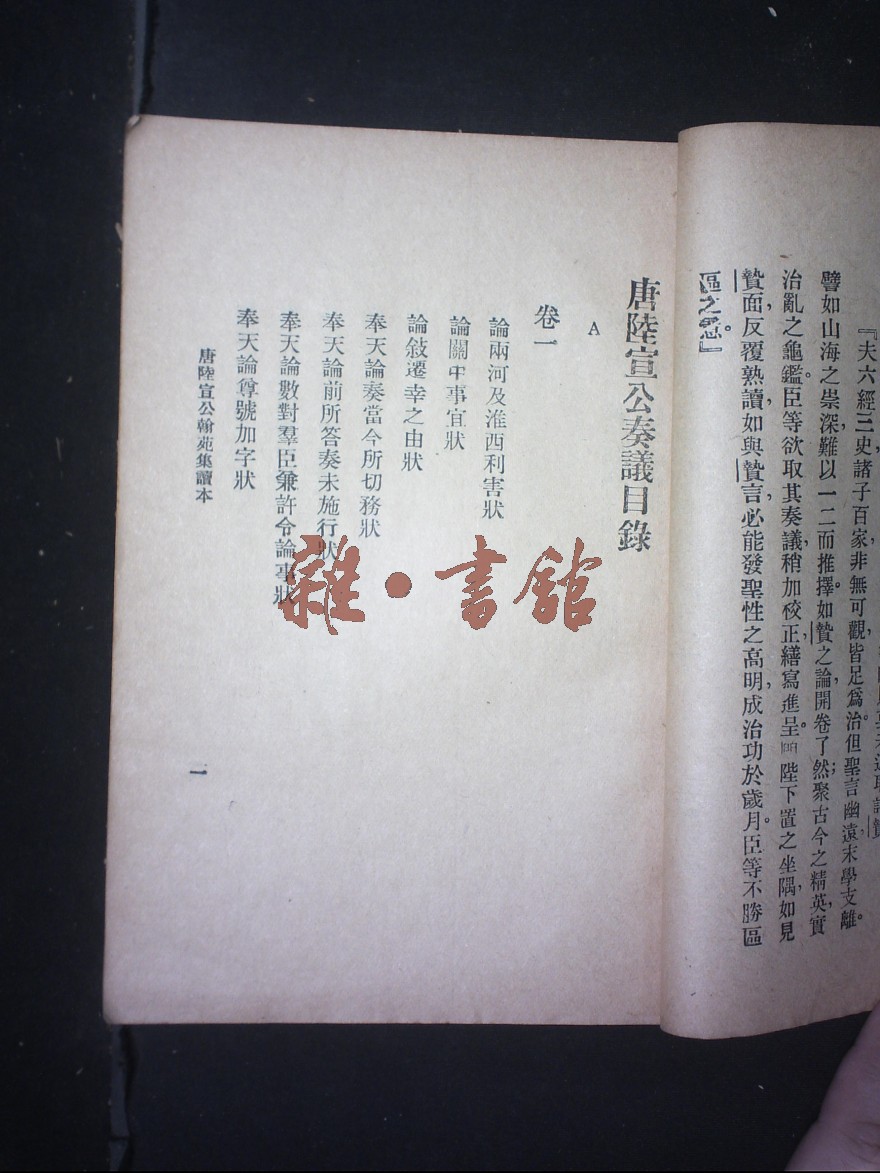 『夫六經三史諸子百家非無可觀皆足爲治但聖言幽遠末學支離。
譬如山海之崇深難以一二而推擇如贄之論開卷了然聚古今之精英實
治亂之龜鑑臣等欲取其奏議稍加校正繕寫進呈。陛下置之坐隅如見
贄面反覆熟讀如與贄言必能發聖性之高明成治功於歲月。臣等不勝區
區之
唐陸宣公奏議目錄
A
卷一
論兩河及淮西利害狀
論關中事宜狀
論敍遷幸之由狀
奉天論奏當今所切務狀
奉天論前所答奏未施行狀
奉天論數對羣臣兼許令論事狀
奉天論尊號加字狀
唐陸宣公翰苑集讀本
一
雜·書館